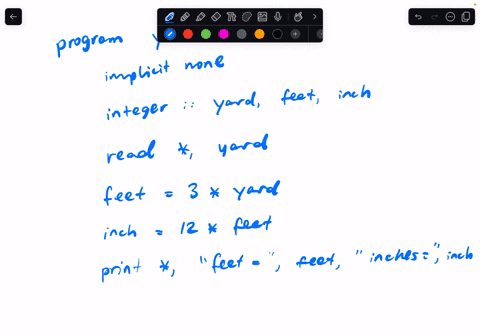 program
implicit none
integer :: yard, feet, inch
read *, yard
feet = 3 * yard
inch = 12 * feet
print *, "feet = ", feet, "inches=", inch